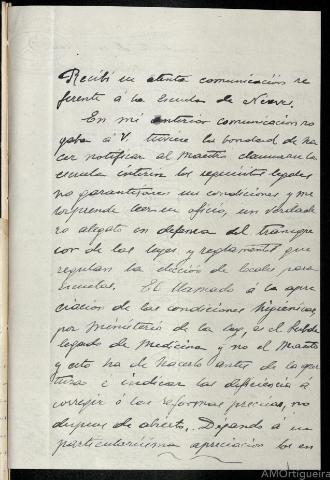 Recibí su atenta comunicación re
ferente á la Escuela de Neves.
En mi anterior comunicacion ro
gaba á V. tuviera la bondad de ha
cer notificar al Maestro clausurara la
escuela interin los requisitos legales
no garantizaren sus condiciones y me
sorprende leer en oficio, un verdade
ro alegato en defensa del transgre
sor de las leyes y reglamentos que
regulan la elección de locales para
Escuelas. El llamado á la apre
ciacion de las condiciones higienicas,
por ministerio de la ley, es el Subde
legado de Medicina y no el Maestro
y esto ha de hacerlo antes de la aper
tura é indicar las deficiencia á
corregir ó las reformas precisas, no
despues de abierto. Dejando á un
particularisima apreciacion los en
AMOrtigueira